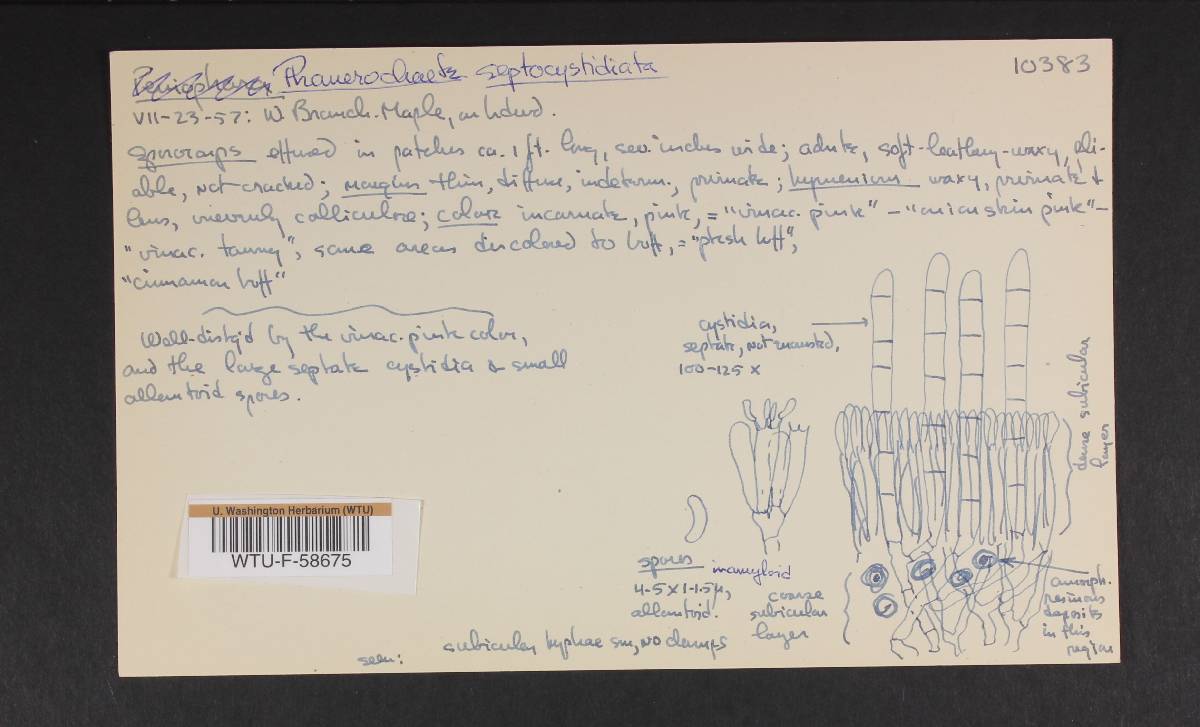 Peniophora Phanerochaete septocystidiata 10383
VII-23-57: W. Branch. Maple, on hdwd.
Sporocarps effused in patches ca. 1 ft. long, sev. inches wide; adnate, soft-leathery-waxy, pli-
able, not cracked; margins thin, diffuse, indeterm., pruinate; hymenium waxy, pruinate +
lens, unevenly colliculose; color incarnate, pink, = "vinac. pink" - "onion skin pink" -
"vinac. tawny"; some areas discolored to buff, = "plesh buff",
"cinnamon buff"
Well-distg'd by the vinac. pink color,
and the large septate cystidia & small
allantoid spores.
cystidia,
septate, not incrusted,
100-125 x
dense subicular
layer
spores inamyloid
4-5 x 1-1.5 µ,
allantoid.
coarse
subicular
layer
amorph.
resinous
deposits
in this
region
subicular hyphae sm, no clamps
seen:
U. Washington Herbarium (WTU)
WTU-F-58675